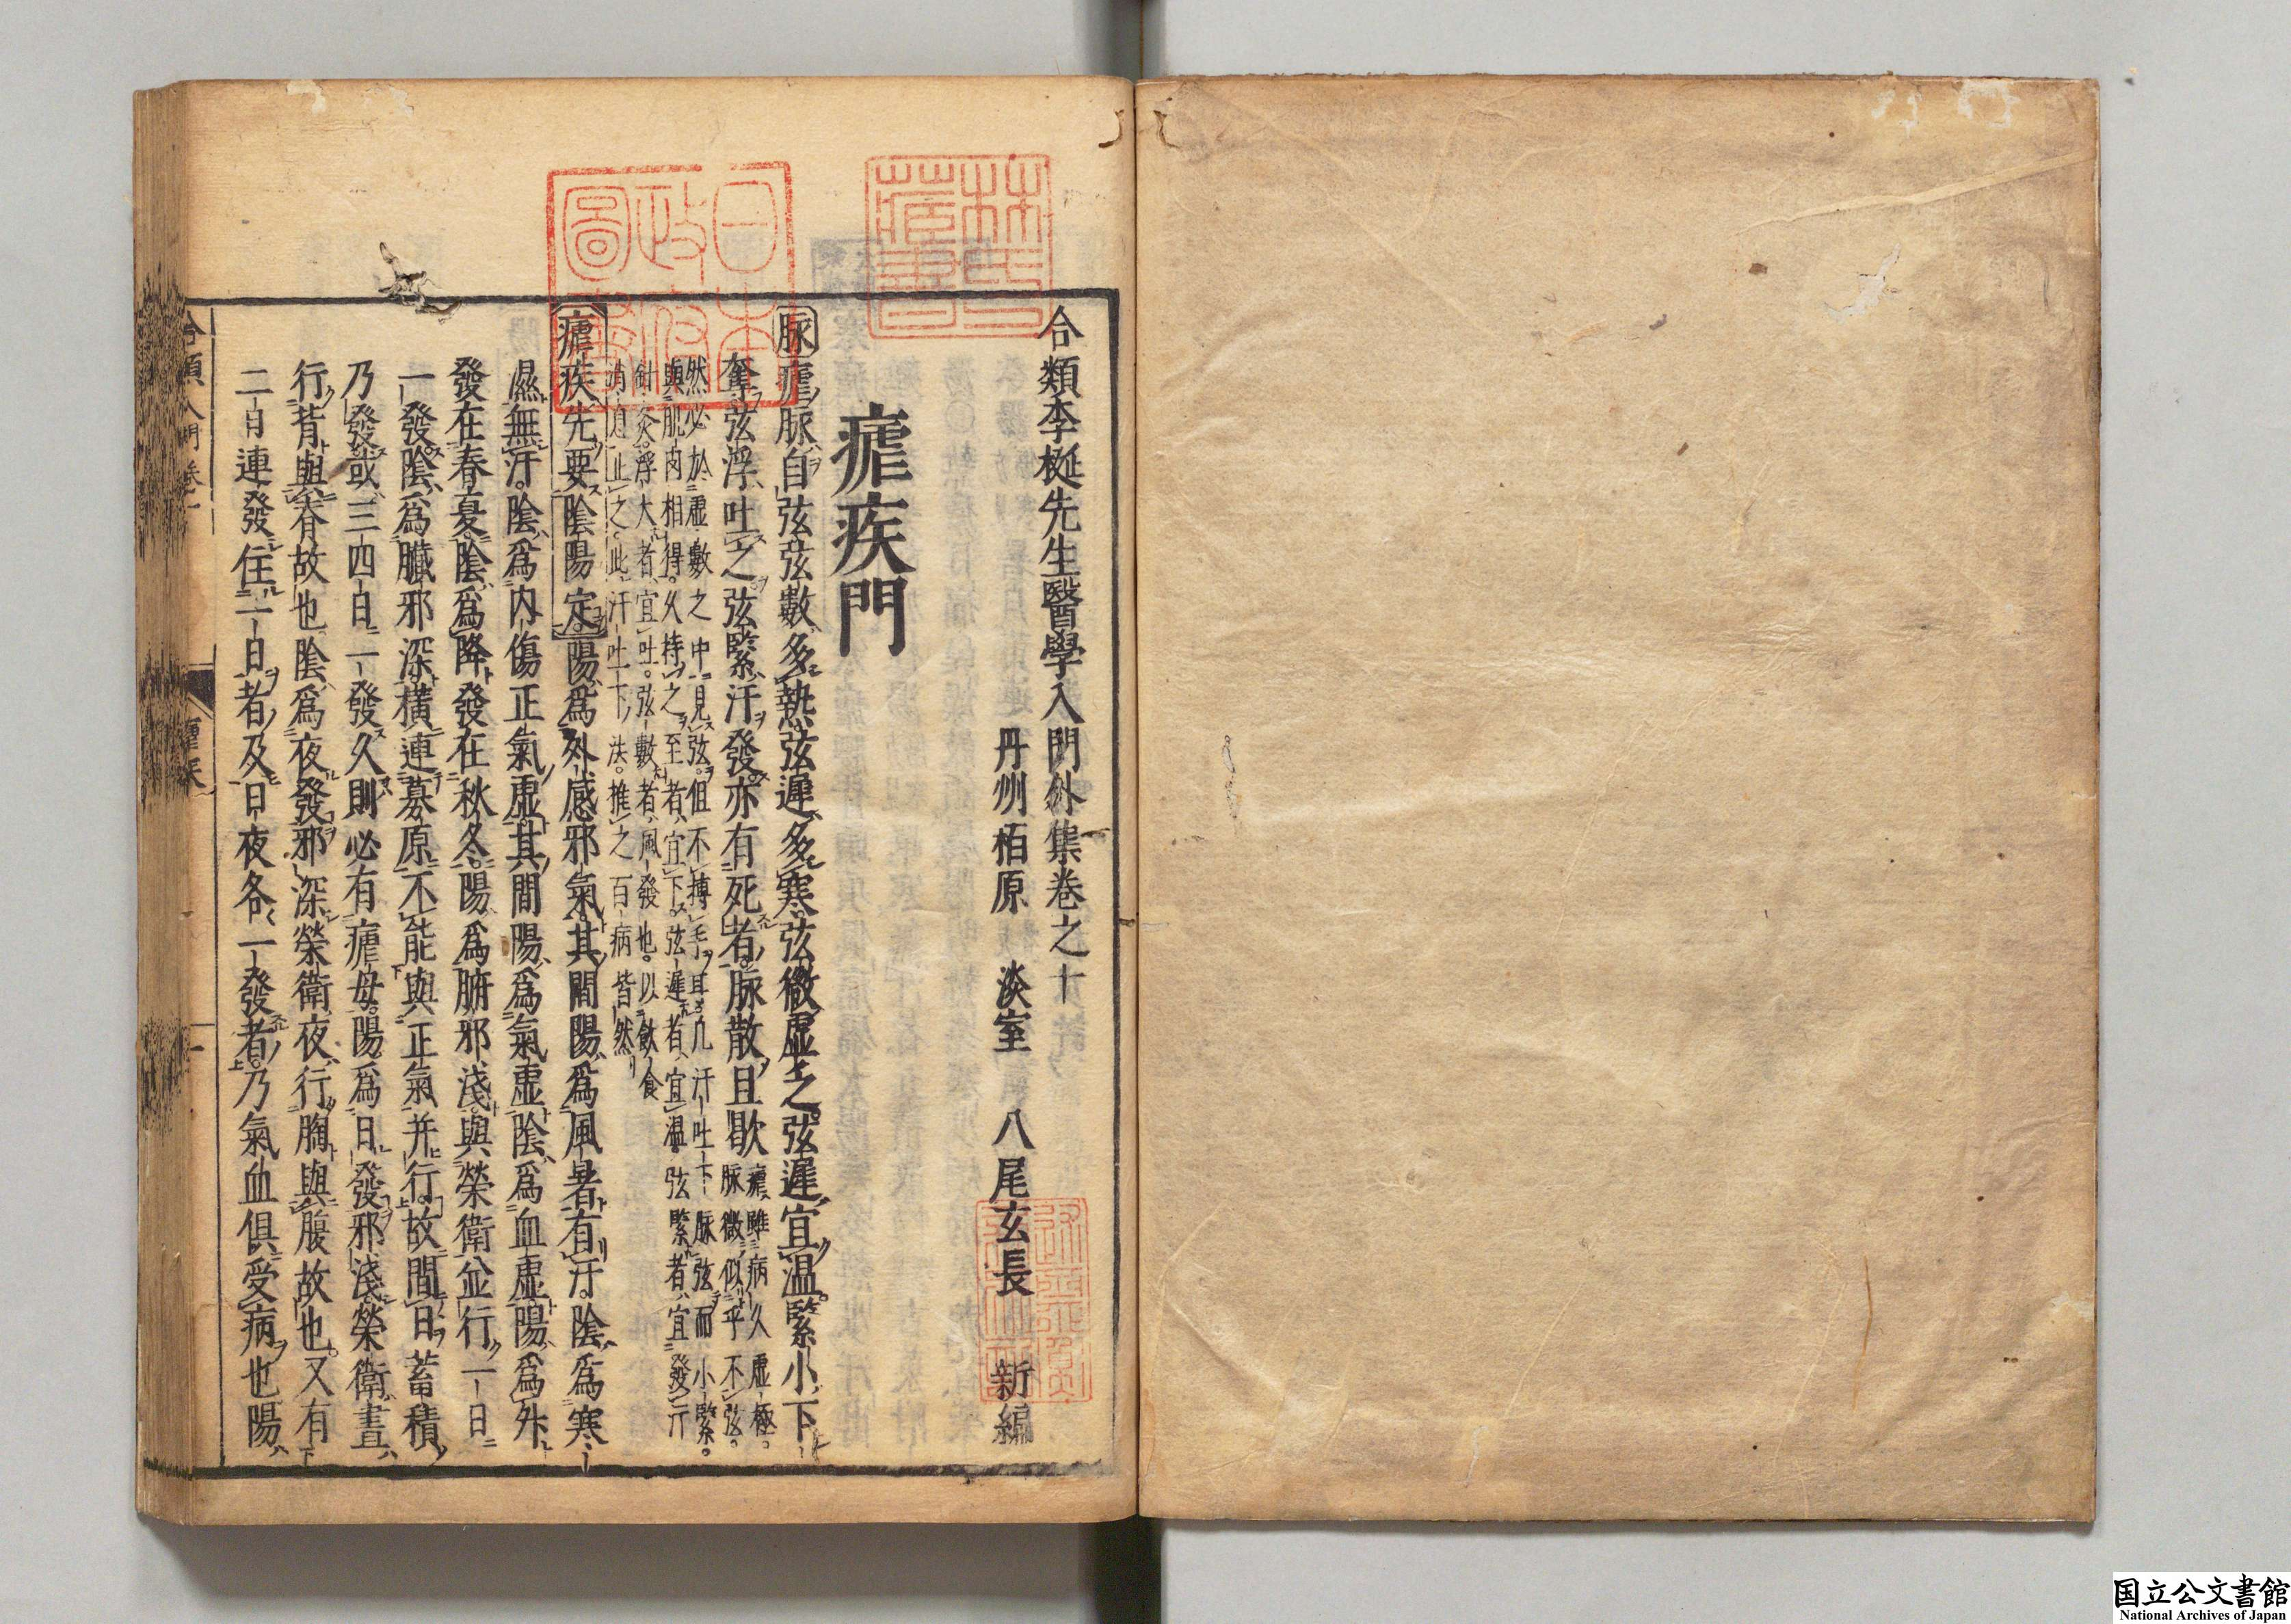 合類李梴先生醫學入門外集卷之十
丹州栢原 淡室 八尾玄長 新編
瘧疾門
脉瘧脉自弦弦數多熱弦遲多寒弦微虚之弦遲宜温緊小下
奪弦浮吐之弦緊汗發亦有死者脉散且歇
瘧雖病久虚極
脉微似乎不弦
然必於虚數之中見弦但不搏手耳凡汗吐下脉弦而小緊
與肌肉相得久持之至者宜下弦遲者宜温弦緊者宜發汗
針灸浮大者宜吐弦數者風發也以飲食
消息止之此汗吐下法推之百病皆然
瘧疾先要陰陽定陽爲外感邪氣其間陽爲風暑有汗陰爲寒
濕無汗陰爲内傷正氣虚其間陽爲氣虚陰爲血虚陽爲外
發在春夏陰爲降發在秋冬陽爲腑邪淺與榮衛並行一日
一發陰爲臓邪深横連募原不能與正氣并行故間日蓄積
乃發或三四日一發久則必有瘧母陽爲日發邪淺榮衛晝
行背與脊故也陰爲夜發邪深榮衛夜行胸與腹故也又有
二日連發住一日者及日夜各一發者乃氣血俱受病也陽
日本政府圖書
林氏藏書
国立公文書館
National Archives of Japan